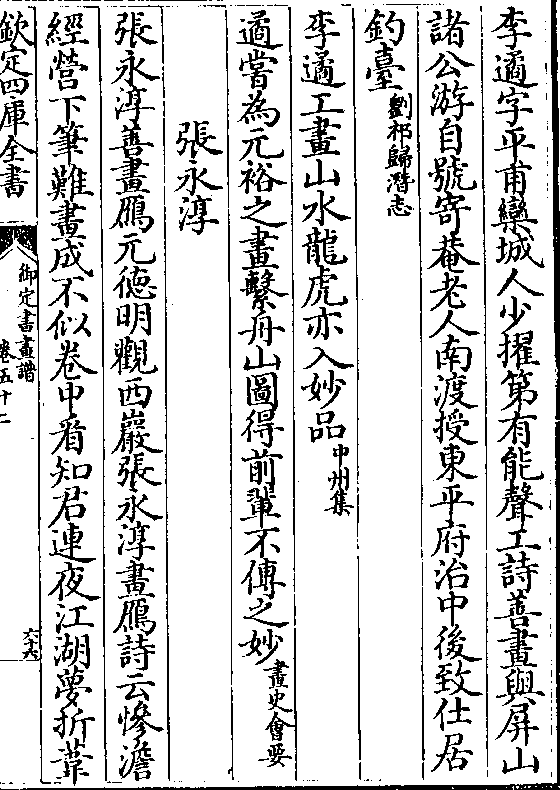 李遹字平甫欒城人少擢第有能聲工詩善畫與屏山
諸公游自號寄菴老人南渡授東平府治中後致仕居
釣臺劉祁歸潛志
李遹工畫山水龍虎亦入妙品中州集
遹嘗為元裕之畫繫舟山圖得前輩不傳之妙畫史會要
張永淳
張永淳善畫鴈元德明觀西巖張永淳畫鴈詩云慘澹
經營下筆難畫成不似卷中看知君連夜江湖夢折葦
欽定四庫全書
御定書畫譜
卷五十二